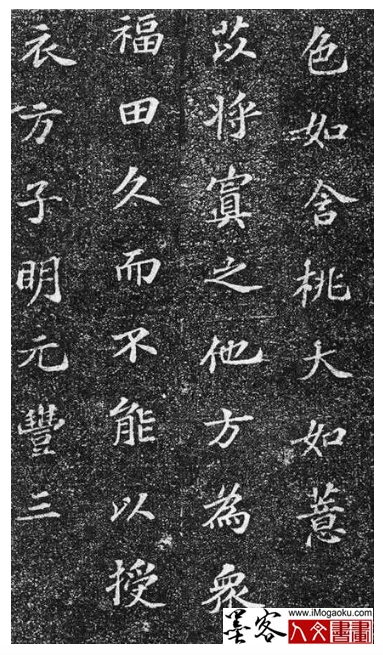 色如含桃大如薏
苡将寘之他方為衆
福田久而不能以授
衣方子明元豐三
墨客
www.iMogaoku.com
人文書畫